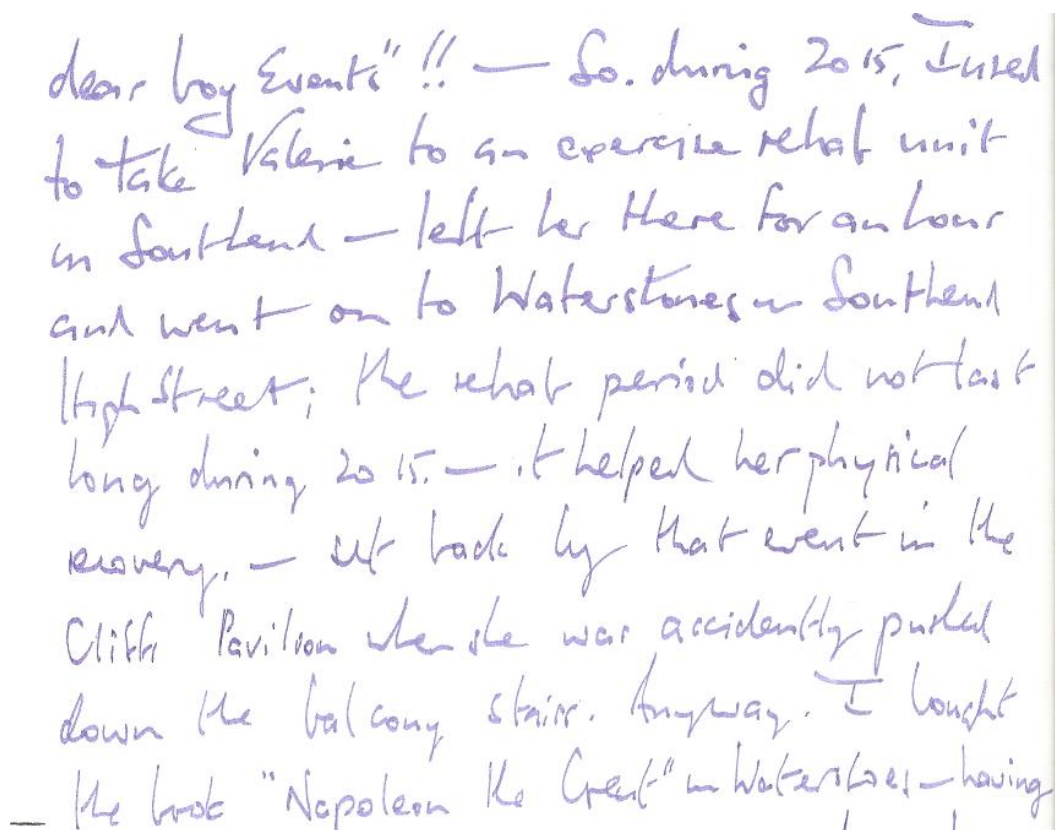 dear boy Events"!! — So. during 2015, I used
to take Valerie to an exercise rehab unit
in Southend — left her there for an hour
and went on to Waterstones in Southend
High Street; the rehab period did not last
long during 2015. — it helped her physical
recovery, — set back by that event in the
Cliffs Pavilion when she was accidently pushed
down the balcony stairs. Anyway. I bought
the book "Napoleon the Great" in Waterstones — having